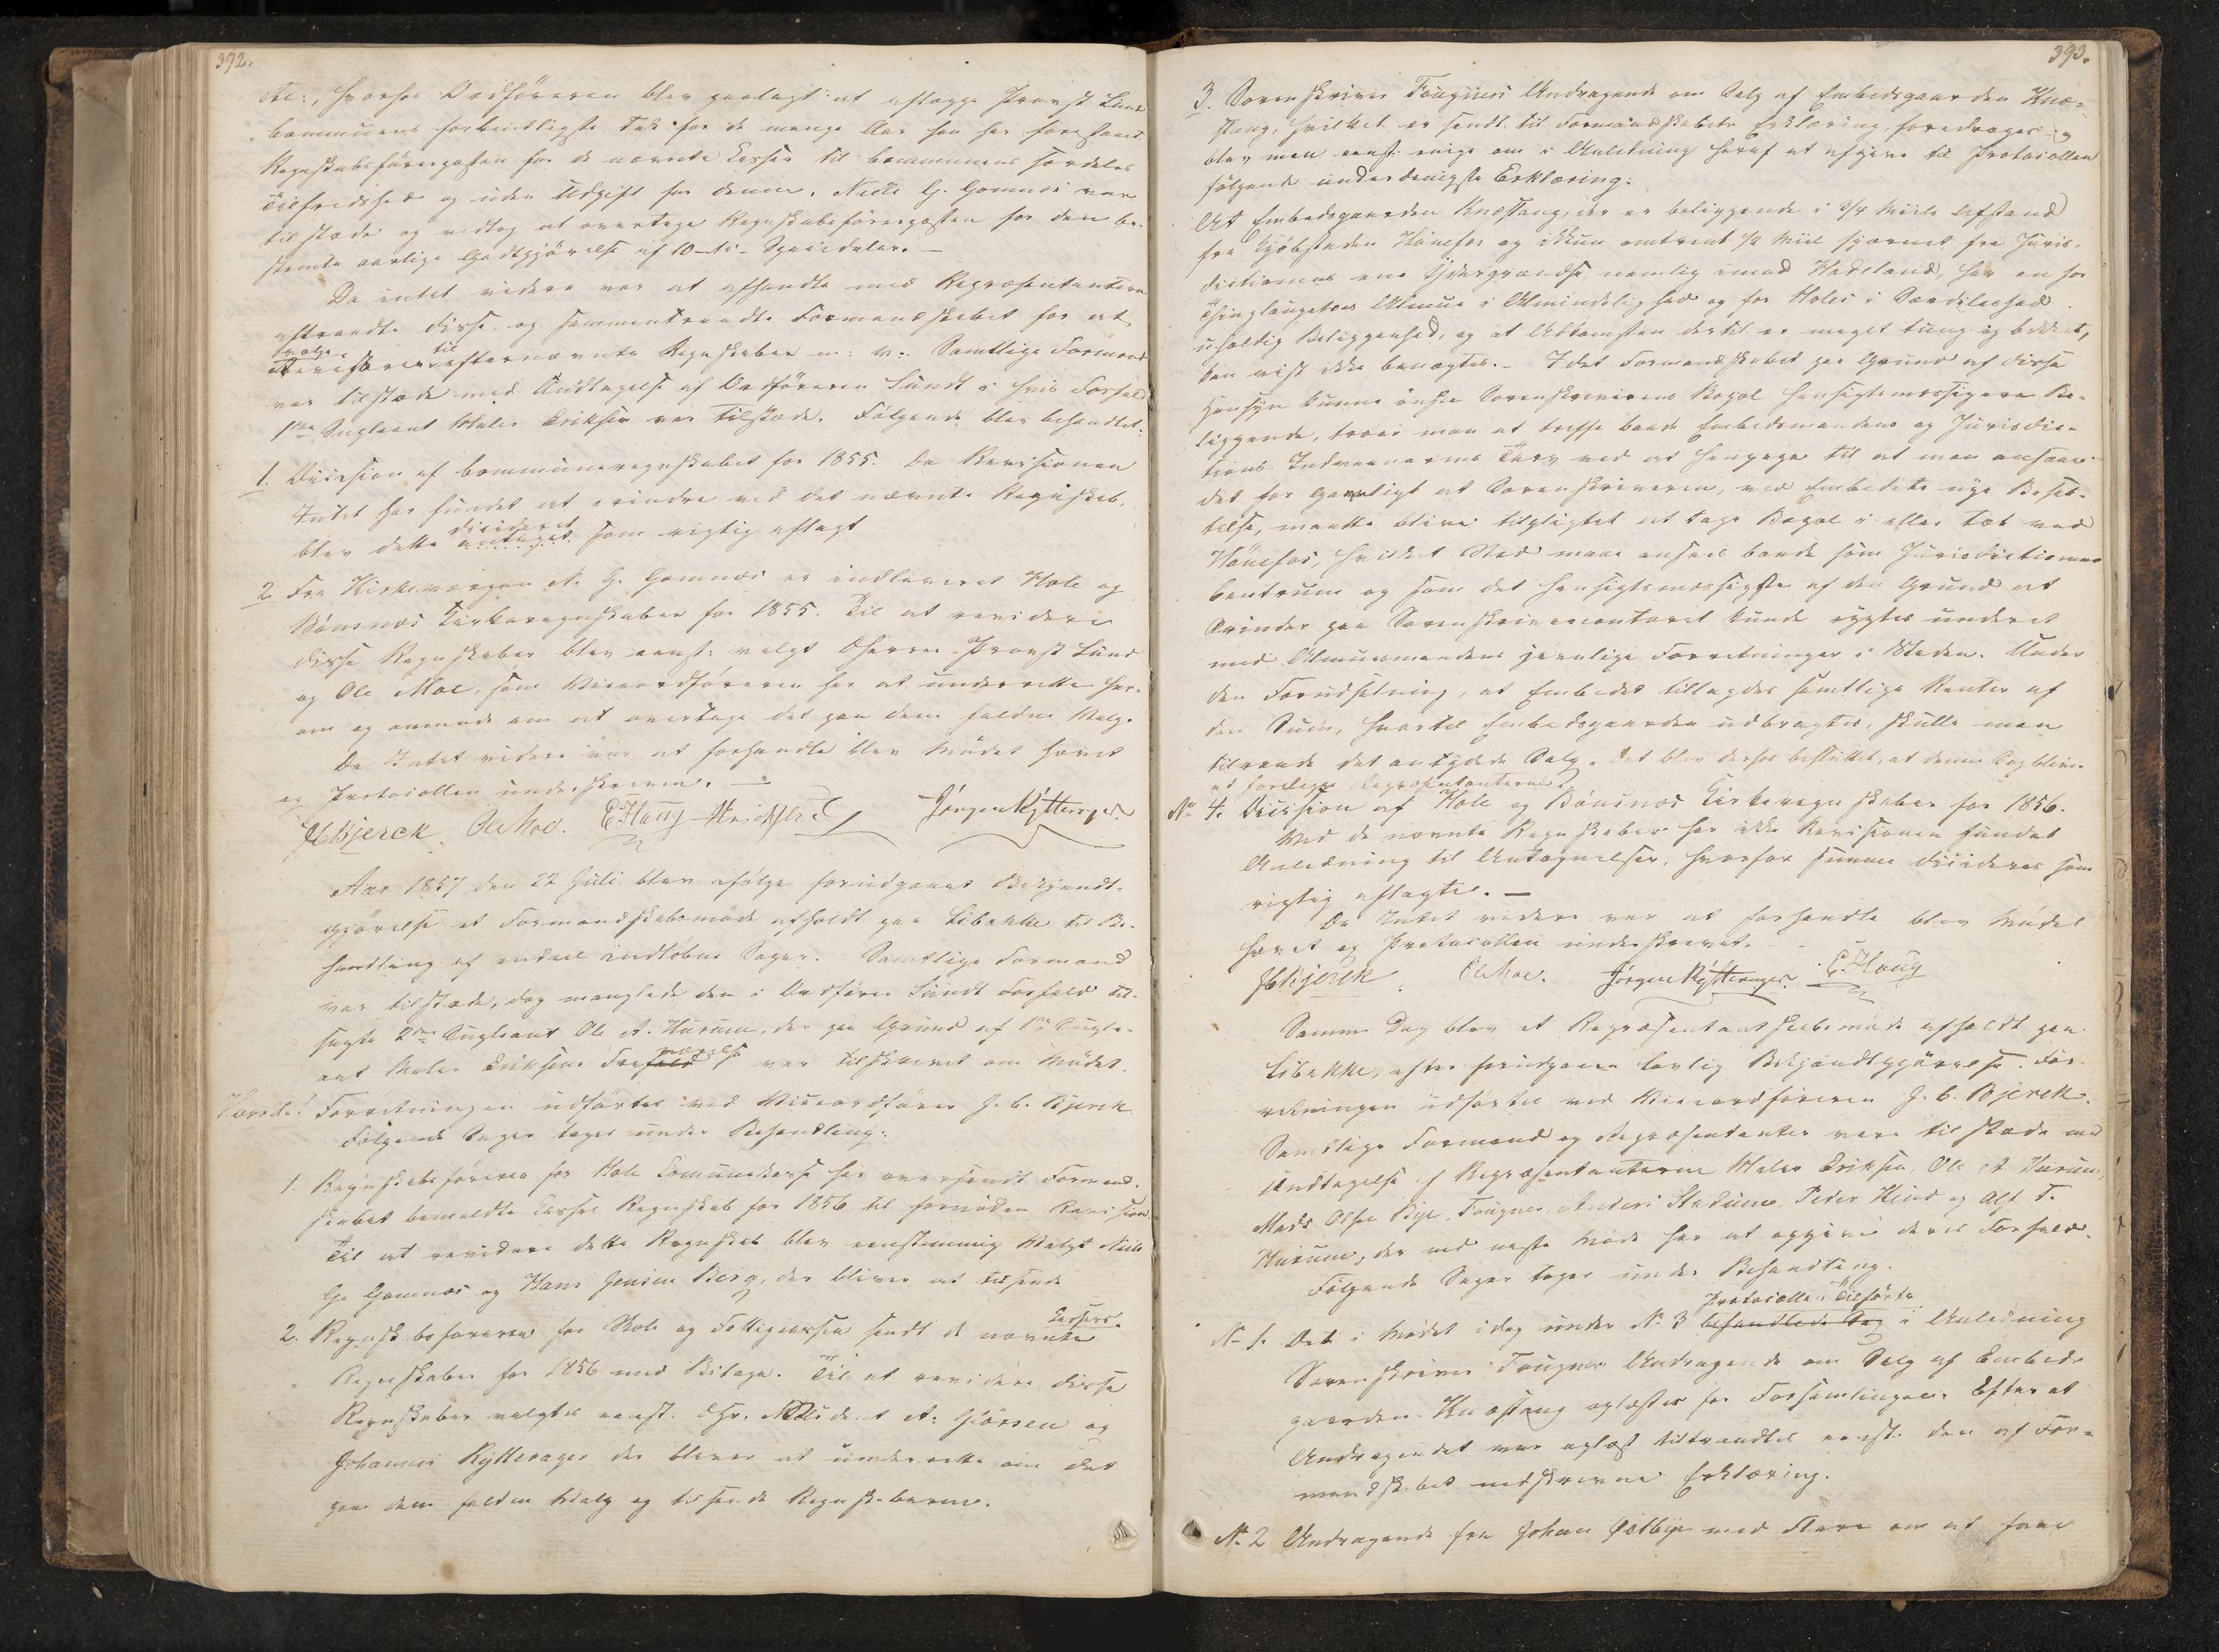 392.
etc., hvorfor Ordføreren blev paalagt at aflægge Provst Lund
Communens forbindtligste Tak for de mange Aar han har forestaaet
Regnskabsførerposten for de nævnte Casser til Communens særdeles
Tilfredshed og uden Udgift for denne. Niels G. Gomnæs var
tilstæde og vedtog at overtage Regnskabsførerposten for den be-
stemte aarlige Godtgjörelse af 10 – ti – Speciedaler. –
Da intet videre var at afhandle med Repræsentanterne
aftraadte disse, og sammentraadte Formandskabet for at
vælge til
efternævnte Regnskaber m: v: Samtlige Formænd
var tilstæde med Undtagelse af Ordføreren Sundt i hvis Forfald
1ste Supleant Maler Eriksen var tilstæde. Følgende blev behandlet:
1. Decision af Communeregnskabet for 1855. Da Revisionen
Intet har fundet at erindre ved det nævnte Regnskab,
decideret
blev dette antaget som rigtig aflagt
2 Fra Kirkeværgen N. G. Gomnæs er indleveret Hole og
Bönsnæs Kirkeregnskaber for 1855. Til at revidere
disse Regnskaber blev eenst: valgt Herrer Provst Lund
og Ole Moe, som Viceordføreren har at underrette her-
om og anmode om at overtage det paa dem faldne Valg.
Da Intet videre var at forhandle blev Mödet hævet
og Protocollen underskreven. –
JCBjerck. Ole Moe. E. Haug MEriksen Jörgen Rytterager
Aar 1857 den 22 Juli blev ifølge forudgaaet Bekjendt-
gjörelse et Formandskabsmöde afholdt paa Libakke til Be-
handling af endeel indløbne Sager. Samtlige Formænd
var tilstæde, dog manglede den i Ordfører Sundt Forfald til-
sagte 2den Supleant Ole A. Hurum, der paa Grund af 1ste Suple-
værelse
ant Maler Eriksens Frafald var tilskrevet om Mödet.
Forretningen udførtes ved Viceordfører J. C. Bjerck
Følgende Sager toges under Behandling:
1. Regnskabsføreren for Hole Comunekasse har oversendt Formand-
skabet bemeldte Casses Regnskab for 1856 til fornöden Revision.
Til at revidere dette Regnskab blev eenstemmig Valgt Niels
G. Gomnæs og Hans Jensen Berg, der bliver at tilsende
Cassers
2. Regnskabsføreren for Skole og Fattigcassen sendt de nævnte
Regnskaber for 1856 med Bilage. Til at revidere disse
Regnskaber valgtes eenst. Hr. Residerende A. Gløersen og
Johannes Rytterager der bliver at underrette om det
paa dem faldne Valg og tilsende Regnskaberne.
393.
3. Sorenskriver Fougners Andragende om Salg af Embedsgaarden Knæ-
stang, hvilket er sendt til Formandskabets Erklæring, foredroges og
blev man eenst. enige om i Anledning heraf at afgive til Protocollen
følgende underdanigste Erklæring:
At Embedsgaarden Knæstang, der er beliggende i 3/4 Miils Afstand
fra Kjøbstaden Hönefos og ikkun omtrent 1/2 Miil fjærnet fra Juris-
dictionens ene Ydergrændse, nemlig imod Hadeland, har en for
Thinglaugets Almue i Almindelighed og for Holes i Særdeleshed
uheldig Beliggenhed, og at Adkomsten dertil er meget tung og bakket,
kan vist ikke benægtes. – Idet Formandskabet paa Grund af disse
Hensyn kunne ønske Sorenskriverens Bopæl hensigtsmæssigere Be-
liggende, troer man at treffe baade Embedsmandens og Jurisdic-
tions Indvaanernes Tarv ved at henpege til at man ansaae
det for gavnligt at Sorenskriveren, ved Embedets nye Beset-
telse, maatte blive tilpligtet at tage Bopæl i eller tæt ved
Hönefos, hvilket Sted maae ansees baade som Jurisdictionens
Centrum og som det hensigtsmæssigste af den Grund at
Ærinder paa Sorenskrivercontoret kunde røgtes underet
med Almuesmandens jevnlige Forretninger i Staden. Under
den Forudsætning, at Embedet tillagdes samtlige Renter af
den Sum, hvortil Embedsgaarden udbragtes, skulle man
tilraade det antydede Salg. Det blev derhos besluttet, at denne Sag bliver
at forelegge Repræsentanterne.
No 4. Decision af Hole og Bönsnæs Kirkeregnskaber for 1856.
Med de nævnte Regnskaber har ikke Revisionen fundet
Anledning til Antegnelser, hvorfor samme decideres som
rigtig aflagte. –
Da Intet videre var at forhandle blev Mödet
hævet og Protocollen underskrevet.
JCBjerck Ole Moe. Jörgen Rytterager. E. Haug
Samme Dag blev et Repræsentantskabsmöde afholdt paa
Libakke, efter forudgaaen lovlig Bekjendtgjörelse. For-
retningen udførtes ved Viceordføreren J. C. Bjerck.
Samtlige Formænd og Repræsentanter vare tilstæde med
Undtagelse af Repræsentanterne Maler Eriksen, Ole A. Hurum,
Mads Olsen Bye, Fougner, Anders Stadum, Peder Hurum og Alf T.
Hurum, der ved neste Möde har at opgive deres Forfald.
Følgende Sager toges under Behandling.
Protocollen Tilførte
No 1. Det i Mödet idag under No 3 behandlede Sag i Anledning
Sorenskriver Fougners Andragende om Salg af Embeds-
gaarden Knæstang oplæstes for Forsamlingen. Efter at
Andragendet var oplæst tiltraadtes eenst. den af For-
mandskabet nedskrevne Erklæring.
No 2 Andragende fra Johan Østbye med Flere om at faae